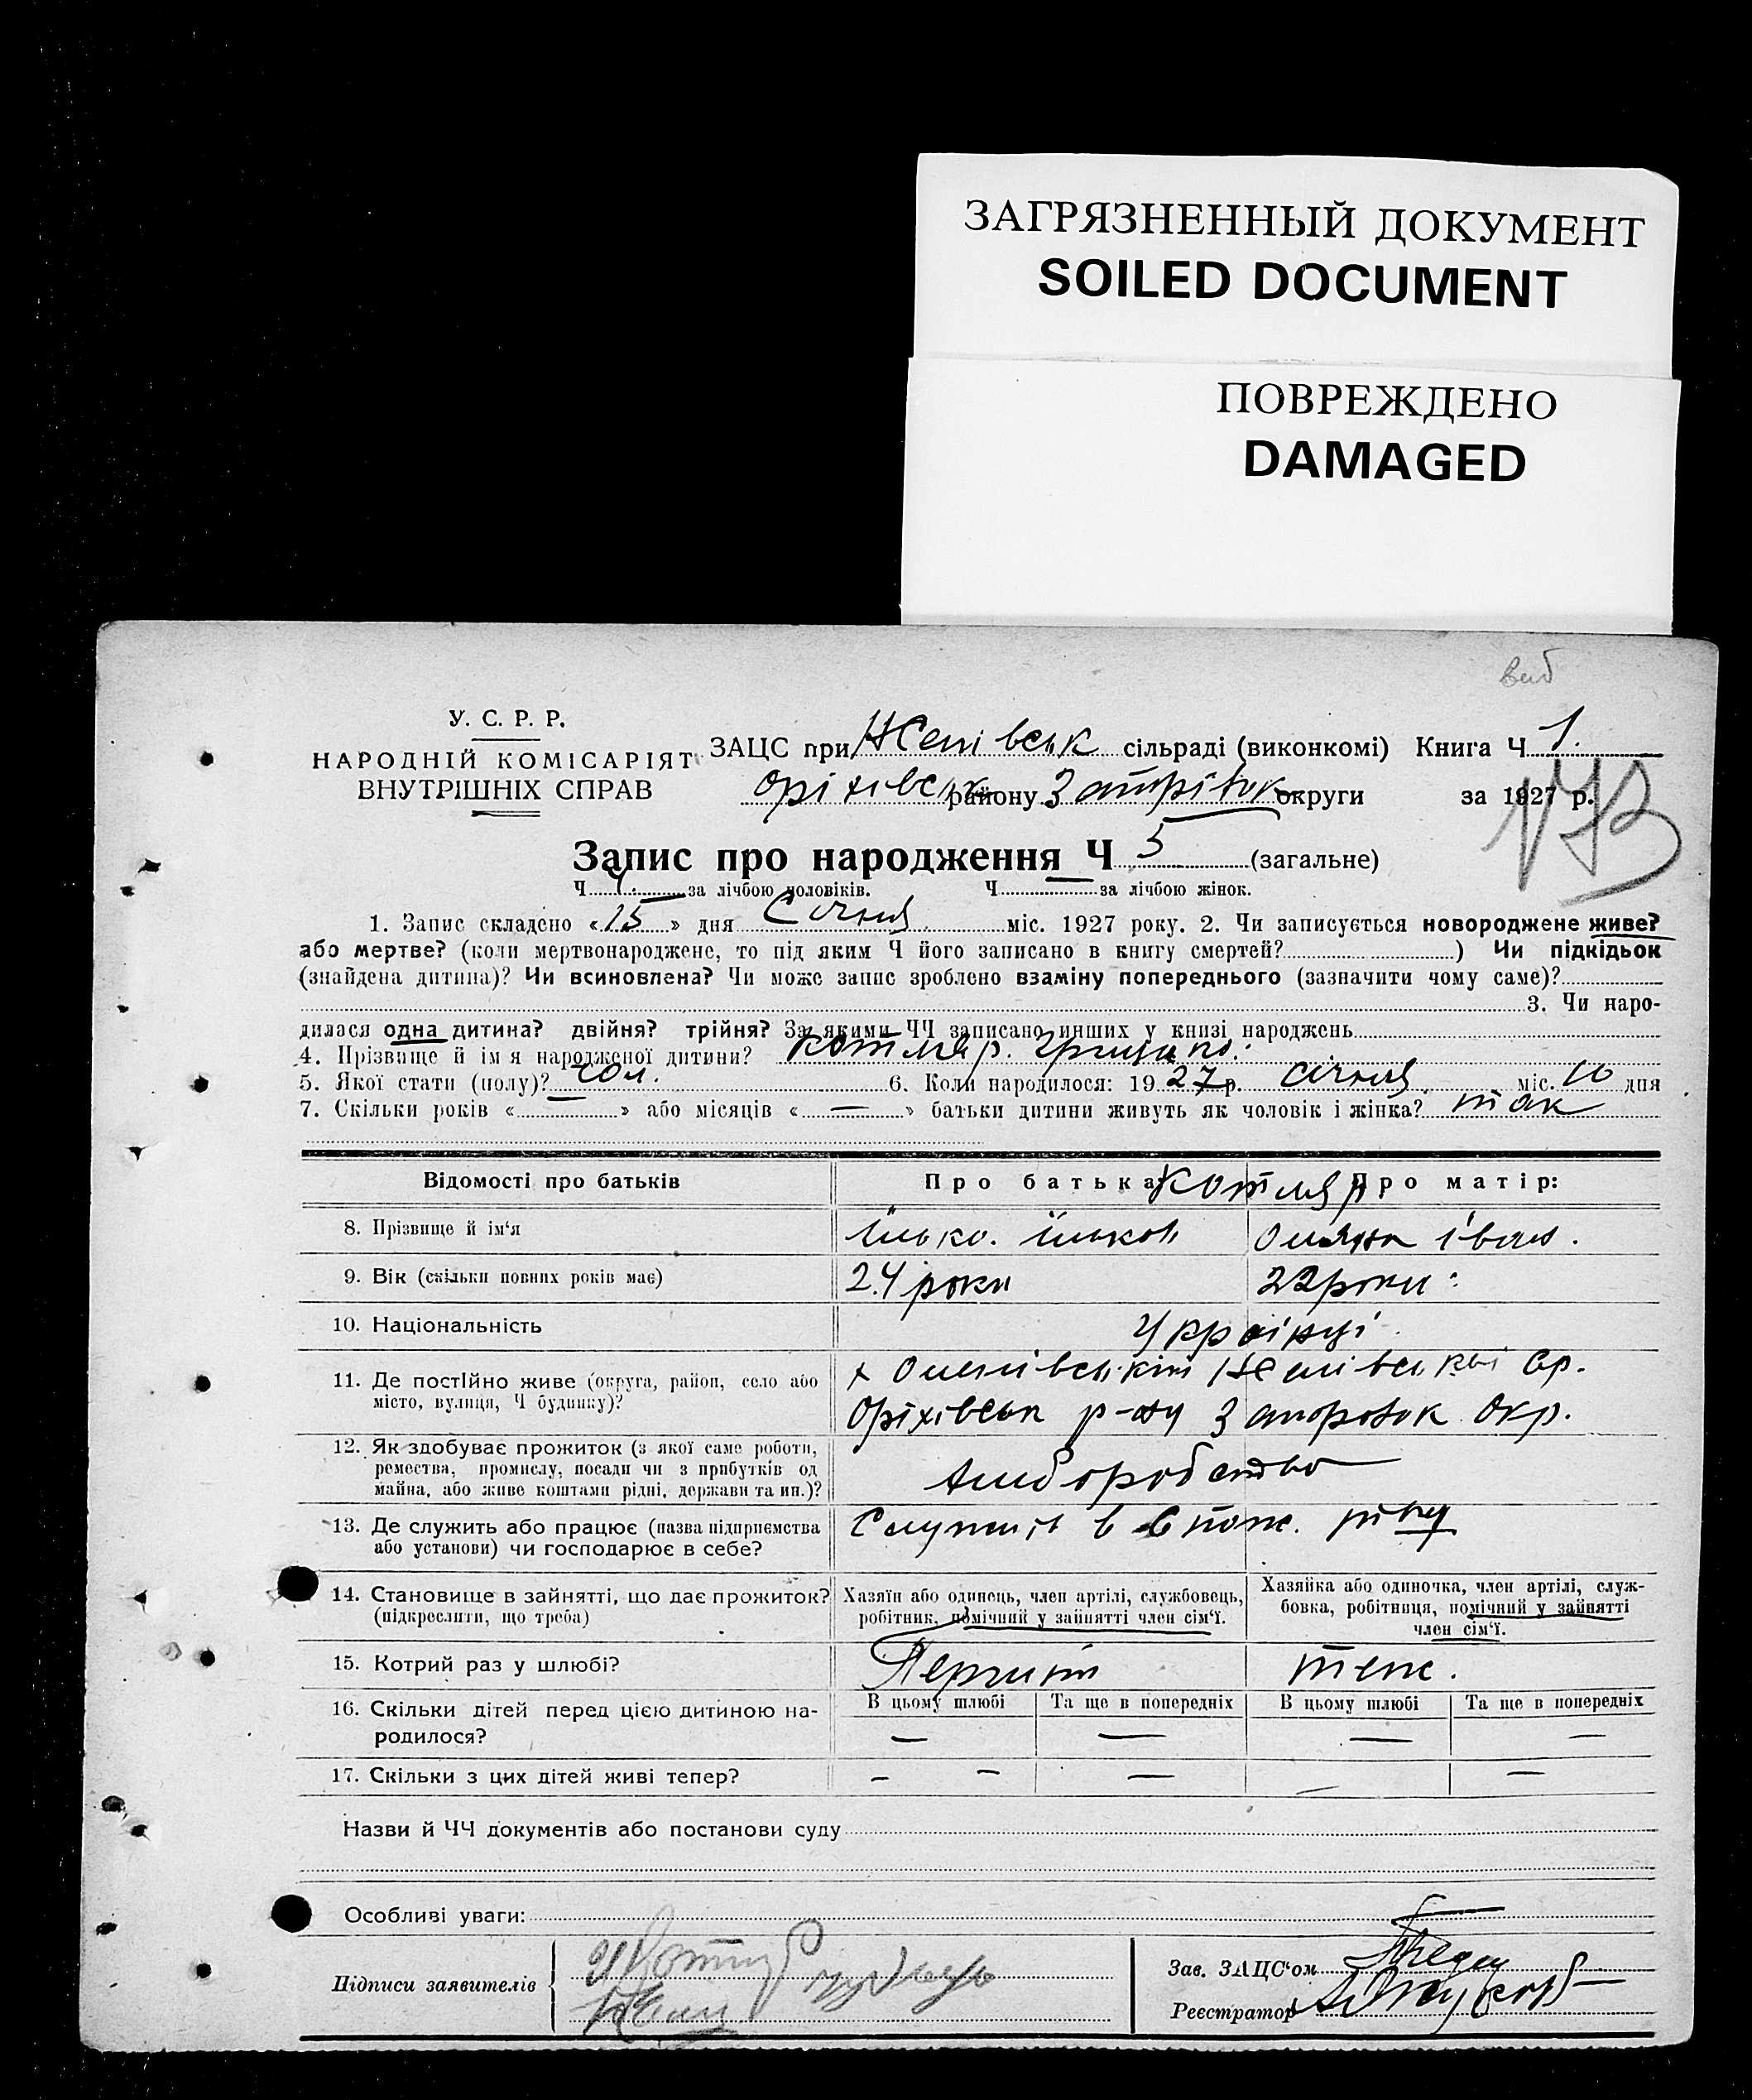 ЗАГРЯЗНЕННЫЙ ДОКУМЕНТ
SOILED DOCUMENT
ПОВРЕЖДЕНО
DAMAGED
У. С. Р. Р.
НАРОДНІЙ КОМІСАРІЯТ
ВНУТРІШНІХ СПРАВ
ЗАЦС при сільраді (виконкомі) Книга Ч 1.
Оріхівськ району округи за 1927 р.
173
Запис про народження Ч 5 (загальне)
Ч 4. за лічбою чоловіків. Ч за лічбою жінок.
1. Запис складено «15» дня Січня міс. 1927 року. 2. Чи записується новороджене живе?
або мертве? (коли мертвонароджене, то під яким Ч його записано в книгу смертей? ) Чи підкідьок
(знайдена дитина)? Чи всиновлена? Чи може запис зроблено взаміну попереднього (зазначити чому саме)?
3. Чи наро-
дилася одна дитина? двійня? трійня? За якими ЧЧ записано инших у книзі народжень
4. Прізвище й ім я народженої дитини? Котляр. Грицько.
5. Якої стати (полу)? Чол. 6. Коли народилося: 1927 р. січня міс. 10 дня
7. Скільки років « — » або місяців « — » батьки дитини живуть як чоловік і жінка? так
Відомості про батьків Про батька: Котляр. Про матір:
8. Прізвище й ім‘я Ілько. Ільков Іван.
9. Вік (скільки повних років має) 24 роки 22 роки
10. Національність Українці
11. Де постійно живе (округа, район, село або
місто, вулиця, Ч будинку)?
х. Ср.
Оріхівськ р-ну Запорозьк Окр.
12. Як здобуває прожиток (з якої саме роботи,
ремества, промислу, посади чи з прибутків од
майна, або живе коштами рідні, держави та ин.)?
Хліборобство
13. Де служить або працює (назва підприємства
або установи) чи господарює в себе?
14. Становище в зайнятті, що дає прожиток?
(підкреслити, що треба)
Хазяїн або одинець, член артілі, службовець,
робітник, помічний у зайнятті член сім‘ї.
Хазяйка або одиночка, член артілі, служ-
бовка, робітниця, помічний у зайнятті
член сім‘ї.
15. Котрий раз у шлюбі? Перший теж.
16. Скільки дітей перед цією дитиною на-
родилося?
В цьому шлюбі Та ще в попередніх В цьому шлюбі Та ще в попередніх
— — — —
17. Скільки з цих дітей живі тепер? – – — — —
Назви й ЧЧ документів або постанови суду
Особливі уваги:
Підписи заявителів
Зав. ЗАЦС‘ом
Реєстратор